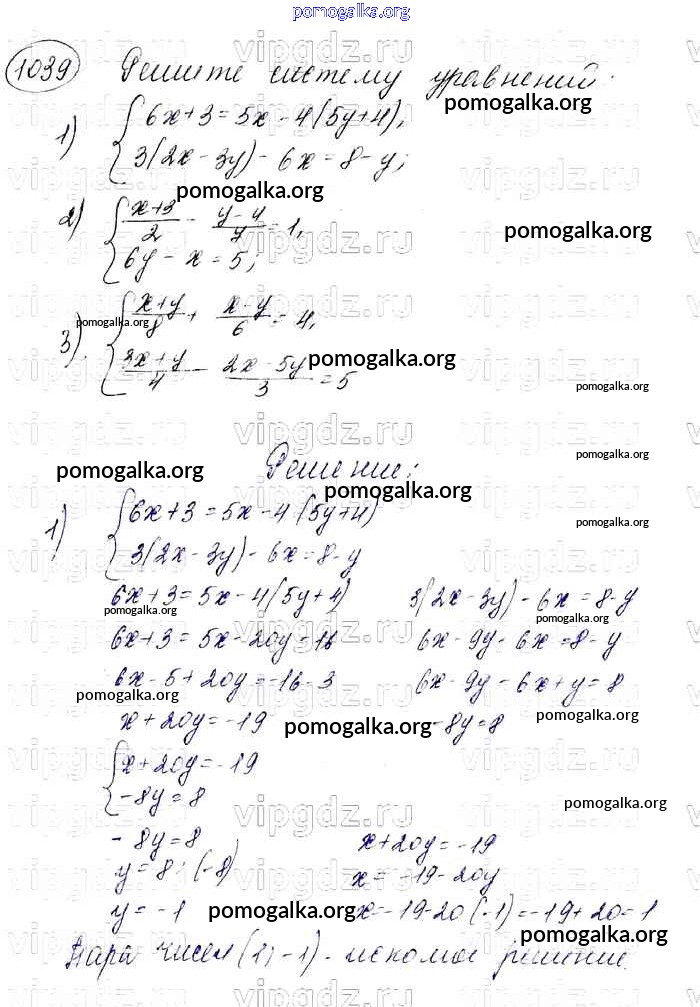 pomogalka.org
1039 Решите систему уравнений:
pomogalka.org
1) { 6x+3=5x-4(5y+4),
3(2x-3y)-6x=8-y;
pomogalka.org
2) { (x+3)/2 - (y-4)/7 = 1,
pomogalka.org
6y-x=5;
3) { (x+y)/8 + (x-y)/6 = 4,
pomogalka.org
(3x+y)/4 - (2x-5y)/3 = 5
pomogalka.org
pomogalka.org
Решение:
pomogalka.org
pomogalka.org
pomogalka.org
1) { 6x+3=5x-4(5y+4)
pomogalka.org
3(2x-3y)-6x=8-y
6x+3=5x-4(5y+4) 3(2x-3y)-6x=8-y
pomogalka.org pomogalka.org
6x+3=5x-20y=16 6x-9y-6x=8-y
6x-5+20y=-16-3 6x-9y-6x+y=8
pomogalka.org
x+20y=-19 pomogalka.org -8y=8
pomogalka.org
{ x+20y=-19
-8y=8
pomogalka.org
-8y=8 x+20y=-19
y=8:(-8) x=-19-20y
y=-1 pomogalka.org x=-19-20(-1)=-19+20=1
pomogalka.org
Пара чисел (1;-1) - искомое решение.
vipgdz.ru